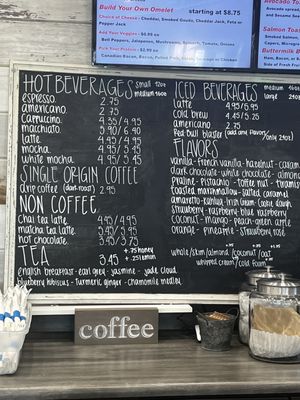 Build Your Own Omelet
starting at $8.75
Choice of Cheese - Cheddar, Smoked Gouda, Cheddar Jack, Feta or
Pepper Jack
Add Your Veggies - $0.99 ea
Bell Peppers, Jalapenos, Mushrooms, Spinach, Tomato, Onions
Pick Your Protein - $2.99 ea
Canadian Bacon, Bacon,
Avocado Toast
Salmon Toast
Buttermilk B
HOT BEVERAGES small 12oz
medium 16oz
espresso 2.75
americano 2.75
cappuccino 4.35/4.95
macchiato 3.90/4.40
latte 4.45/4.95
mocha 4.95/5.45
white mocha 4.95/5.45
SINGLE ORIGIN COFFEE
drip coffee (dark roast) 2.95
NON COFFEE
chai tea latte 4.45/4.95
matcha tea latte 5.45/5.95
hot chocolate 3.45/3.75
TEA 3.45 +.75 honey
+.25 lemon
english breakfast - earl grey - jasmine - jade cloud
blueberry hibiscus - turmeric ginger - chamomile medley
ICED BEVERAGES medium
large
latte 4.95/5.95
cold brew 4.45/5.25
americano
Red bull blaster (add one flavor)
FLAVORS
vanilla - french vanilla - hazelnut - caramel
dark chocolate - white chocolate - almond
praline - pistachio - toffee nut - tiramisu
toasted marshmallow - salted caramel
amaretto - kahlua - irish cream - cookie dough
strawberry - raspberry - blue raspberry
coconut - mango - peach - green apple
orange - pineapple - rose
whole/skim/almond/coconut/oat
whipped cream/cold foam
coffee